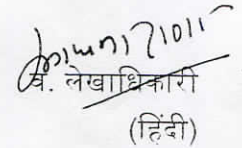 व. लेखाधिकारी
(हिंदी)